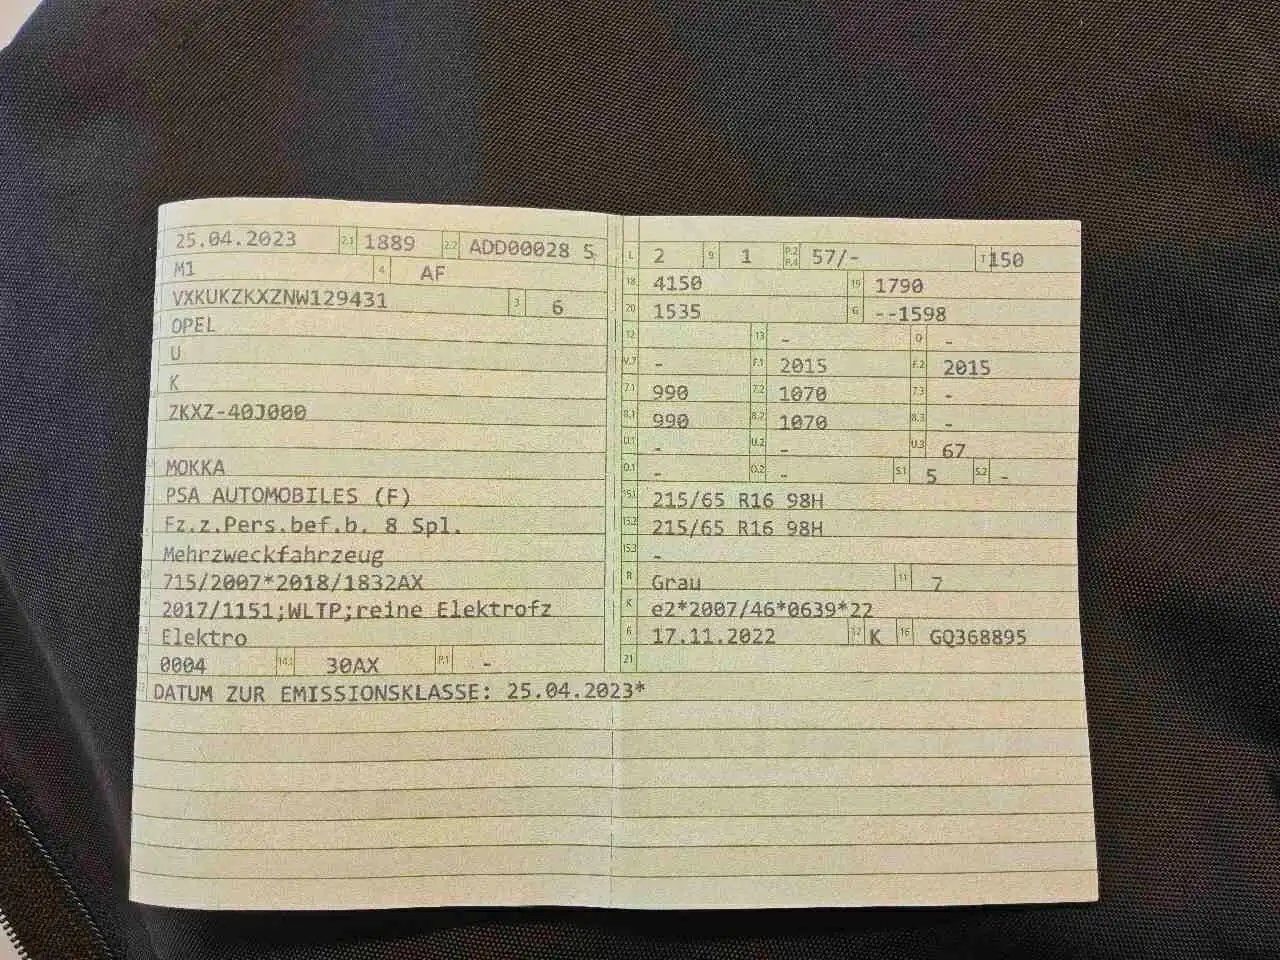 25.04.2023 2.1 1889 2.2 ADD00028 S
M1 4 AF
VXKUKZKXZNW129431 3 6
OPEL
U
K
ZKXZ-40J000
MOKKA
PSA AUTOMOBILES (F)
Fz.z.Pers.bef.b. 8 Spl.
Mehrzweckfahrzeug
715/2007*2018/1832AX
2017/1151;WLTP;reine Elektrofz
Elektro
0004 14.1 30AX P.1 -
DATUM ZUR EMISSIONSKLASSE: 25.04.2023*
L 2 9 1 P.2 P.4 57/- T 150
18 4150 19 1790
20 1535 G --1598
12 13 - Q -
V.7 - F.1 2015 F.2 2015
7.1 990 7.2 1070 7.3 -
8.1 990 8.2 1070 8.3 -
U.1 - U.2 - U.3 67
O.1 - O.2 - S.1 5 S.2 -
15.1 215/65 R16 98H
15.2 215/65 R16 98H
15.3 -
R Grau 11 7
K e2*2007/46*0639*22
6 17.11.2022 17 K 16 GQ368895
21